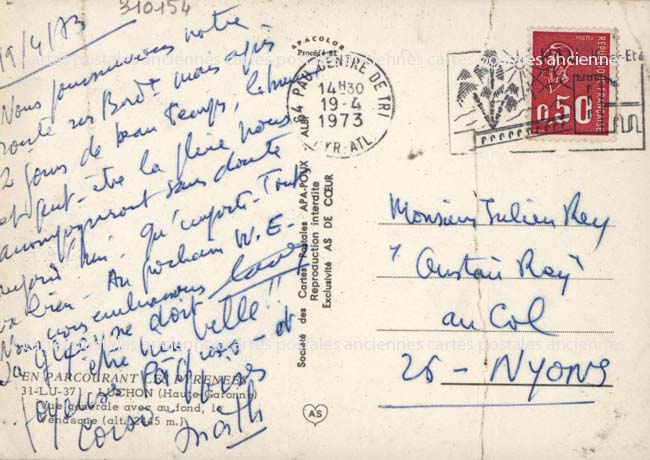 310154
19/4/73
Nous poursuivons notre
route sur Bord. mais après
2 jours de beau temps, la brume
et peut-être la pluie nous
accompagneront sans doute
aujourd'hui. Qu'importe. Tout
va bien. Au prochain W.E.
Nous vous embrassons
doit
être belle !!
Joyeuses Pâques - et
EN PARCOURANT LES PYRENEES
31-LU-371 - LUCHON (Haute-Garonne)
Vue générale avec au fond, le
Vénasque (alt. 2445 m.)
APACOLOR
Procédé 51
Société des Cartes Postales APA-POUX - ALBI
Reproduction interdite
Exclusivité AS DE CŒUR
AS
64 PAU CENTRE DE TRI
14H30
19-4
1973
PYR-ATL.
REPUBLIQUE FRANÇAISE
0.50
Monsieur Julien Rey
au Col
26 - NYONS
cartes postales anciennes cartes postales anciennes cartes postales anciennes